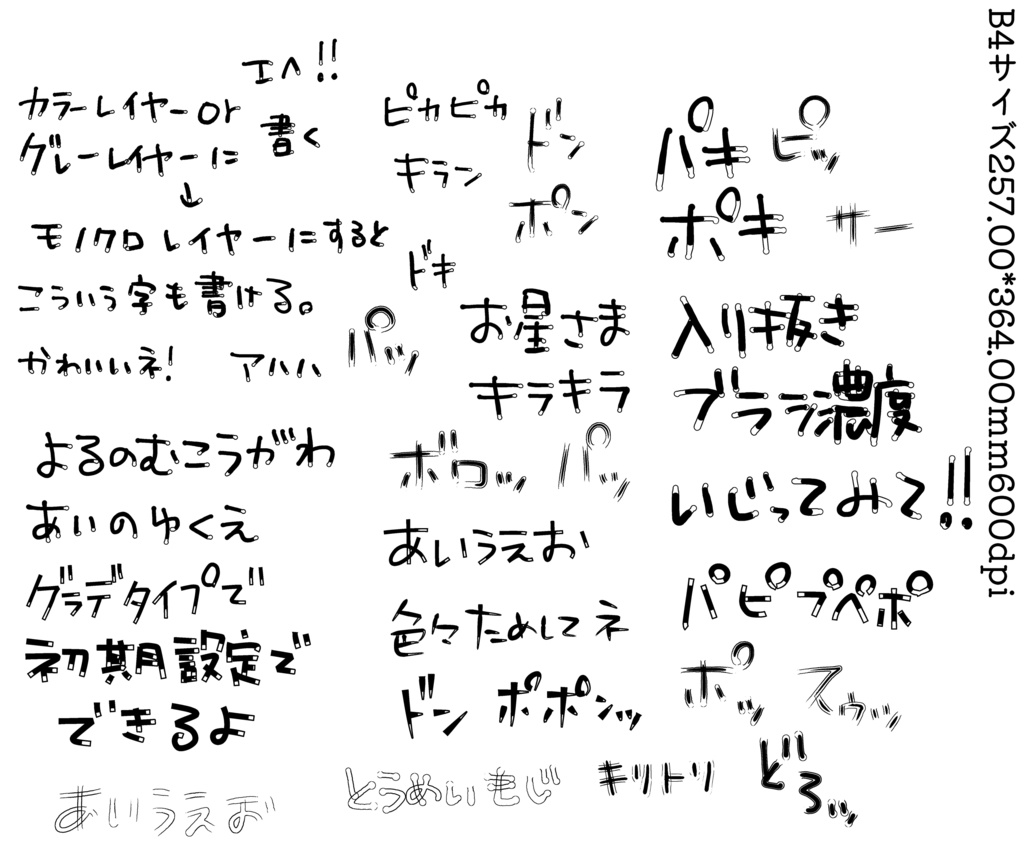 エヘ!!
カラーレイヤーor
グレーレイヤーに
書く
↓
モノクロレイヤーにすると
こういう字も書ける。
かわいいネ!
アハハ
よるのむこうがわ
あいのゆくえ
グラデタイプで
初期設定で
できるよ
あいうえお
ピカピカ
ドン
キラン
ポン
ドキ
お星さま
パッ
キラキラ
ボロッ
パッ
あいうえお
色々ためしてネ
ドン
ポポンッ
とうめいもじ
キリトリ
パキ
ピッ
ポキ
サー
入り抜き
ブラシ濃度
いじってみて!!
パピプペポ
ポッ
スゥッ
どろッ
B4サイズ257.00*364.00mm600dpi